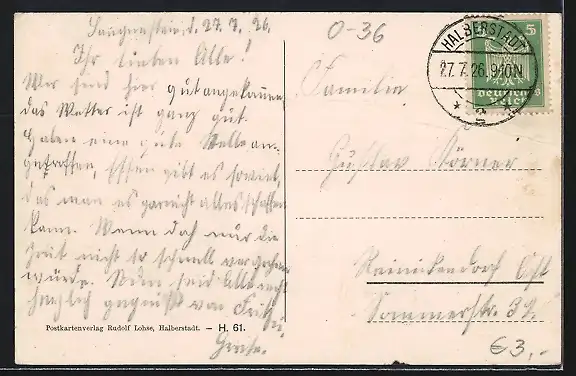 Langenstein d. 27. 7. 26.
Ihr lieben Alle!
Wir sind hier gut angekommen
das Wetter ist ganz gut.
Haben eine gute Stelle an-
getroffen, Essen gibt es soviel,
das man es garnicht alles schaffen
kann. Wenn doch nur die
Zeit nicht so schnell vergehen
würde. Nun seid Alle recht
herzlich gegrüßt von Fritz u.
Grete.
Postkartenverlag Rudolf Lohse, Halberstadt. – H. 61.
O-36
HALBERSTADT
27.7.26.9-10N
5
Deutsches
Reich
Familie
Gustav Körner
Reinickendorf Ost
Sommerstr. 32.
€3,-